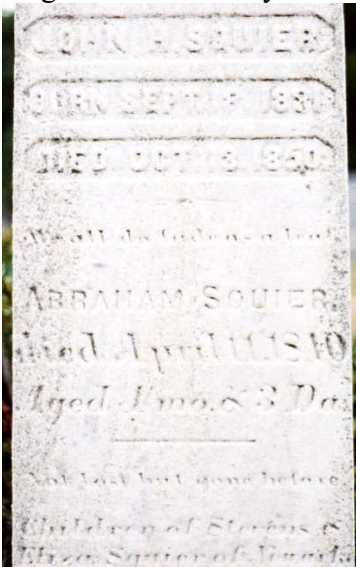 JOHN H. SQUIER
BORN SEPT. 1831
DIED OCT. 1850
We all do fade as a leaf
ABRAHAM SQUIER,
died April 11, 1840
Aged 4 mo. & 3 Da
Not lost but gone before
Children of Stevens &
Eliza Squier of Nevada